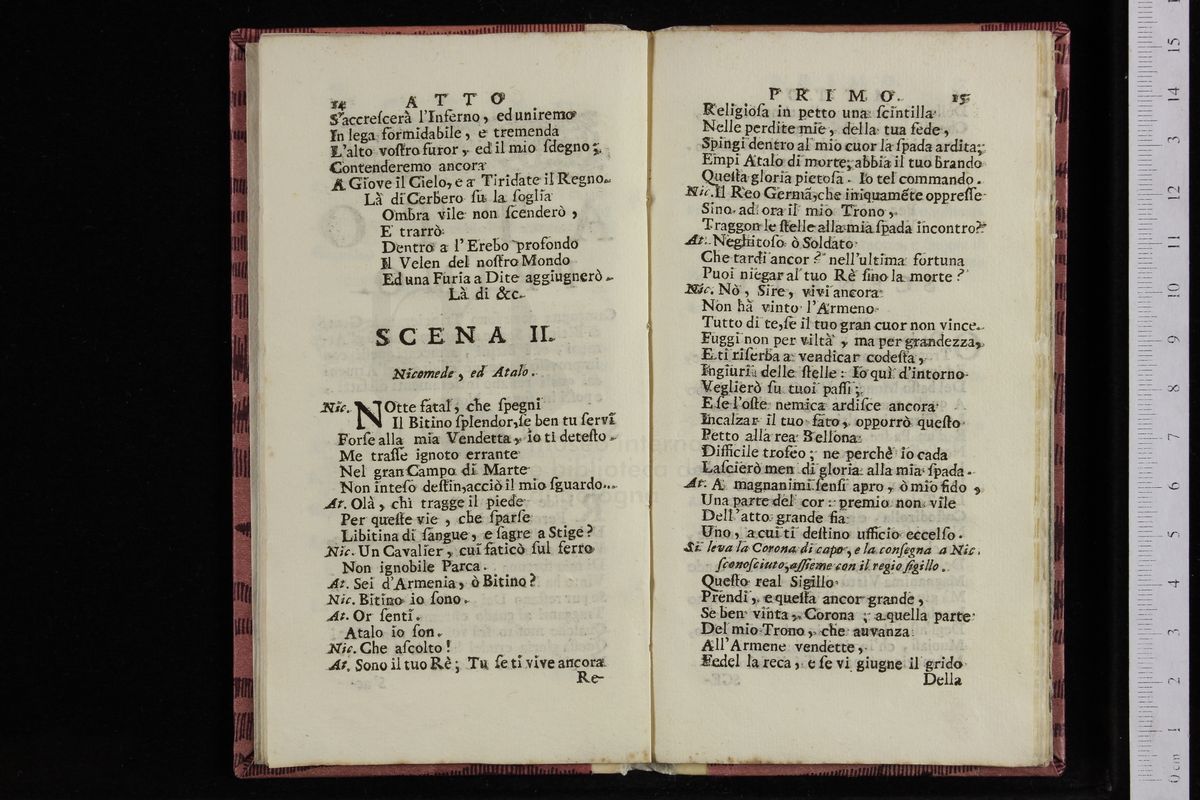 14 ATTO
S'accrescerà l'Inferno, ed uniremo
In lega formidabile, e tremenda
L'alto vostro furor, ed il mio sdegno;
Contenderemo ancora
A Giove il Cielo, e a Tiridate il Regno.
Là di Cerbero su la soglia
Ombra vile non scenderò,
E trarrò
Dentro a l'Erebo profondo
Il Velen del nostro Mondo
Ed una Furia a Dite aggiugnerò.
Là di &c.
SCENA II.
Nicomede, ed Atalo.
Nic. NOtte fatal, che spegni
Il Bitino splendor, se ben tu servi
Forse alla mia Vendetta, io ti detesto.
Me trasse ignoto errante
Nel gran Campo di Marte
Non inteso destin, acciò il mio sguardo...
At. Olà, chi tragge il piede
Per queste vie, che sparse
Libitina di sangue, e sagre a Stige?
Nic. Un Cavalier, cui faticò sul ferro
Non ignobile Parca.
At. Sei d'Armenia, ò Bitino?
Nic. Bitino io sono.
At. Or senti.
Atalo io son.
Nic. Che ascolto!
At. Sono il tuo Rè; Tu se ti vive ancora
Re-
PRIMO. 15
Religiosa in petto una scintilla
Nelle perdite mie, della tua fede,
Spingi dentro al mio cuor la spada ardita;
Empi Atalo di morte; abbia il tuo brando
Questa gloria pietosa. Io tel commando.
Nic. Il Reo Germã, che iniquamẽte oppresse
Sino ad ora il mio Trono,
Traggon le stelle alla mia spada incontro?
At. Neghitoso ò Soldato
Che tardi ancor? nell'ultima fortuna
Puoi niegar al tuo Rè sino la morte?
Nic. Nò, Sire, vivi ancora
Non hà vinto l'Armeno
Tutto di te, se il tuo gran cuor non vince.
Fuggi non per viltà, ma per grandezza,
E ti riserba a vendicar codesta,
Ingiuria delle stelle: Io quì d'intorno
Veglierò su tuoi passi;
E se l'oste nemica ardisce ancora
Incalzar il tuo fato, opporrò questo
Petto alla rea Bellona
Difficile trofeo; ne perchè io cada
Lascierò men di gloria alla mia spada.
At. A magnanimi sensi apro, ò mio fido,
Una parte del cor: premio non vile
Dell'atto grande fia
Uno, a cui ti destino ufficio eccelso.
Si leva la Corona di capo, e la consegna a Nic.
sconosciuto, assieme con il regio sigillo.
Questo real Sigillo
Prendi, e questa ancor grande,
Se ben vinta, Corona; a quella parte
Del mio Trono, che auvanza
All'Armene vendette,
Fedel la reca, e se vi giugne il grido
Della